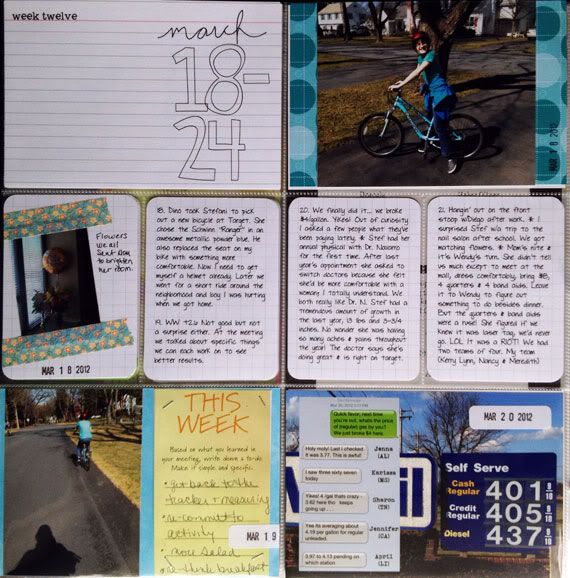 week twelve
march
18-
24
MAR 18 2012
Flowers
we all
sent
to brighten
her room.
MAR 18 2012
18. Dino took Stefani to pick
out a new bicycle at Target. She
chose the Schwinn "Ranger" in an
awesome metallic powder blue. He
also replaced the seat on my
bike with something more
comfortable. Now I need to get
myself a helmet already. Later we
went for a short ride around the
neighborhood and boy I was hurting
when we got home.
19. WW +2.6 Not good but not
a surprise either. At the meeting
we talked about specific things
we can each work on to see
better results.
20. We finally did it... we broke
$4/gallon. Yikes! Out of curiosity
I asked a few people what they've
been paying lately. * Stef had her
annual physical with Dr. Navarro
for the first time. After last
year's appointment she asked to
switch doctors because she felt
she'd be more comfortable with a
woman; I totally understand. We
both really like Dr. N. Stef had a
tremendous amount of growth in
the last year, 13 lbs and 3-3/4
inches. No wonder she was having
so many aches & pains throughout
the year! The doctor says she's
doing great & is right on target.
21. Hangin' out on the front
stoop w/Diego after work. * I
surprised Stef w/a trip to the
nail salon after school. We got
matching flowers. * Mom's nite &
it's Wendy's turn. She didn't tell
us much except to meet at the
mall, dress comfortably, bring $8,
4 quarters & 4 band aids. Leave
it to Wendy to figure out
something to do besides dinner.
But the quarters & band aids
were a ruse! She figured if we
knew it was laser tag, we'd never
go. LOL It was a RIOT! We had
two teams of four. My team
(Kerry Lynn, Nancy & Meredith)
THIS
WEEK
Based on what you learned in
your meeting, write down a to-do.
Make it simple and specific.
• get back to the
tracker + measuring
• re-commit to
activity
• more salad
MAR 19
Quick favor, next time
you're out, whats the price
of (regular) gas by you?
We just broke $4 here.
Holy moly! Last i checked
it was 3.77. This is awful!
Jenna
(AL)
I saw three sixty seven
today
Karissa
(MS)
Yikes! 4 /gal thats crazy -
3.62 here tho keeps
going up . . .
Sharon
(TN)
Yea its averaging about
4.19 per gallon for regular
unleaded.
Jennifer
(CA)
3.97 to 4.13 pending on
which station
April
(LI)
MAR 20 2012
Self Serve
Cash
Regular
401 9/10
Credit
Regular
405 9/10
Diesel
437 9/10